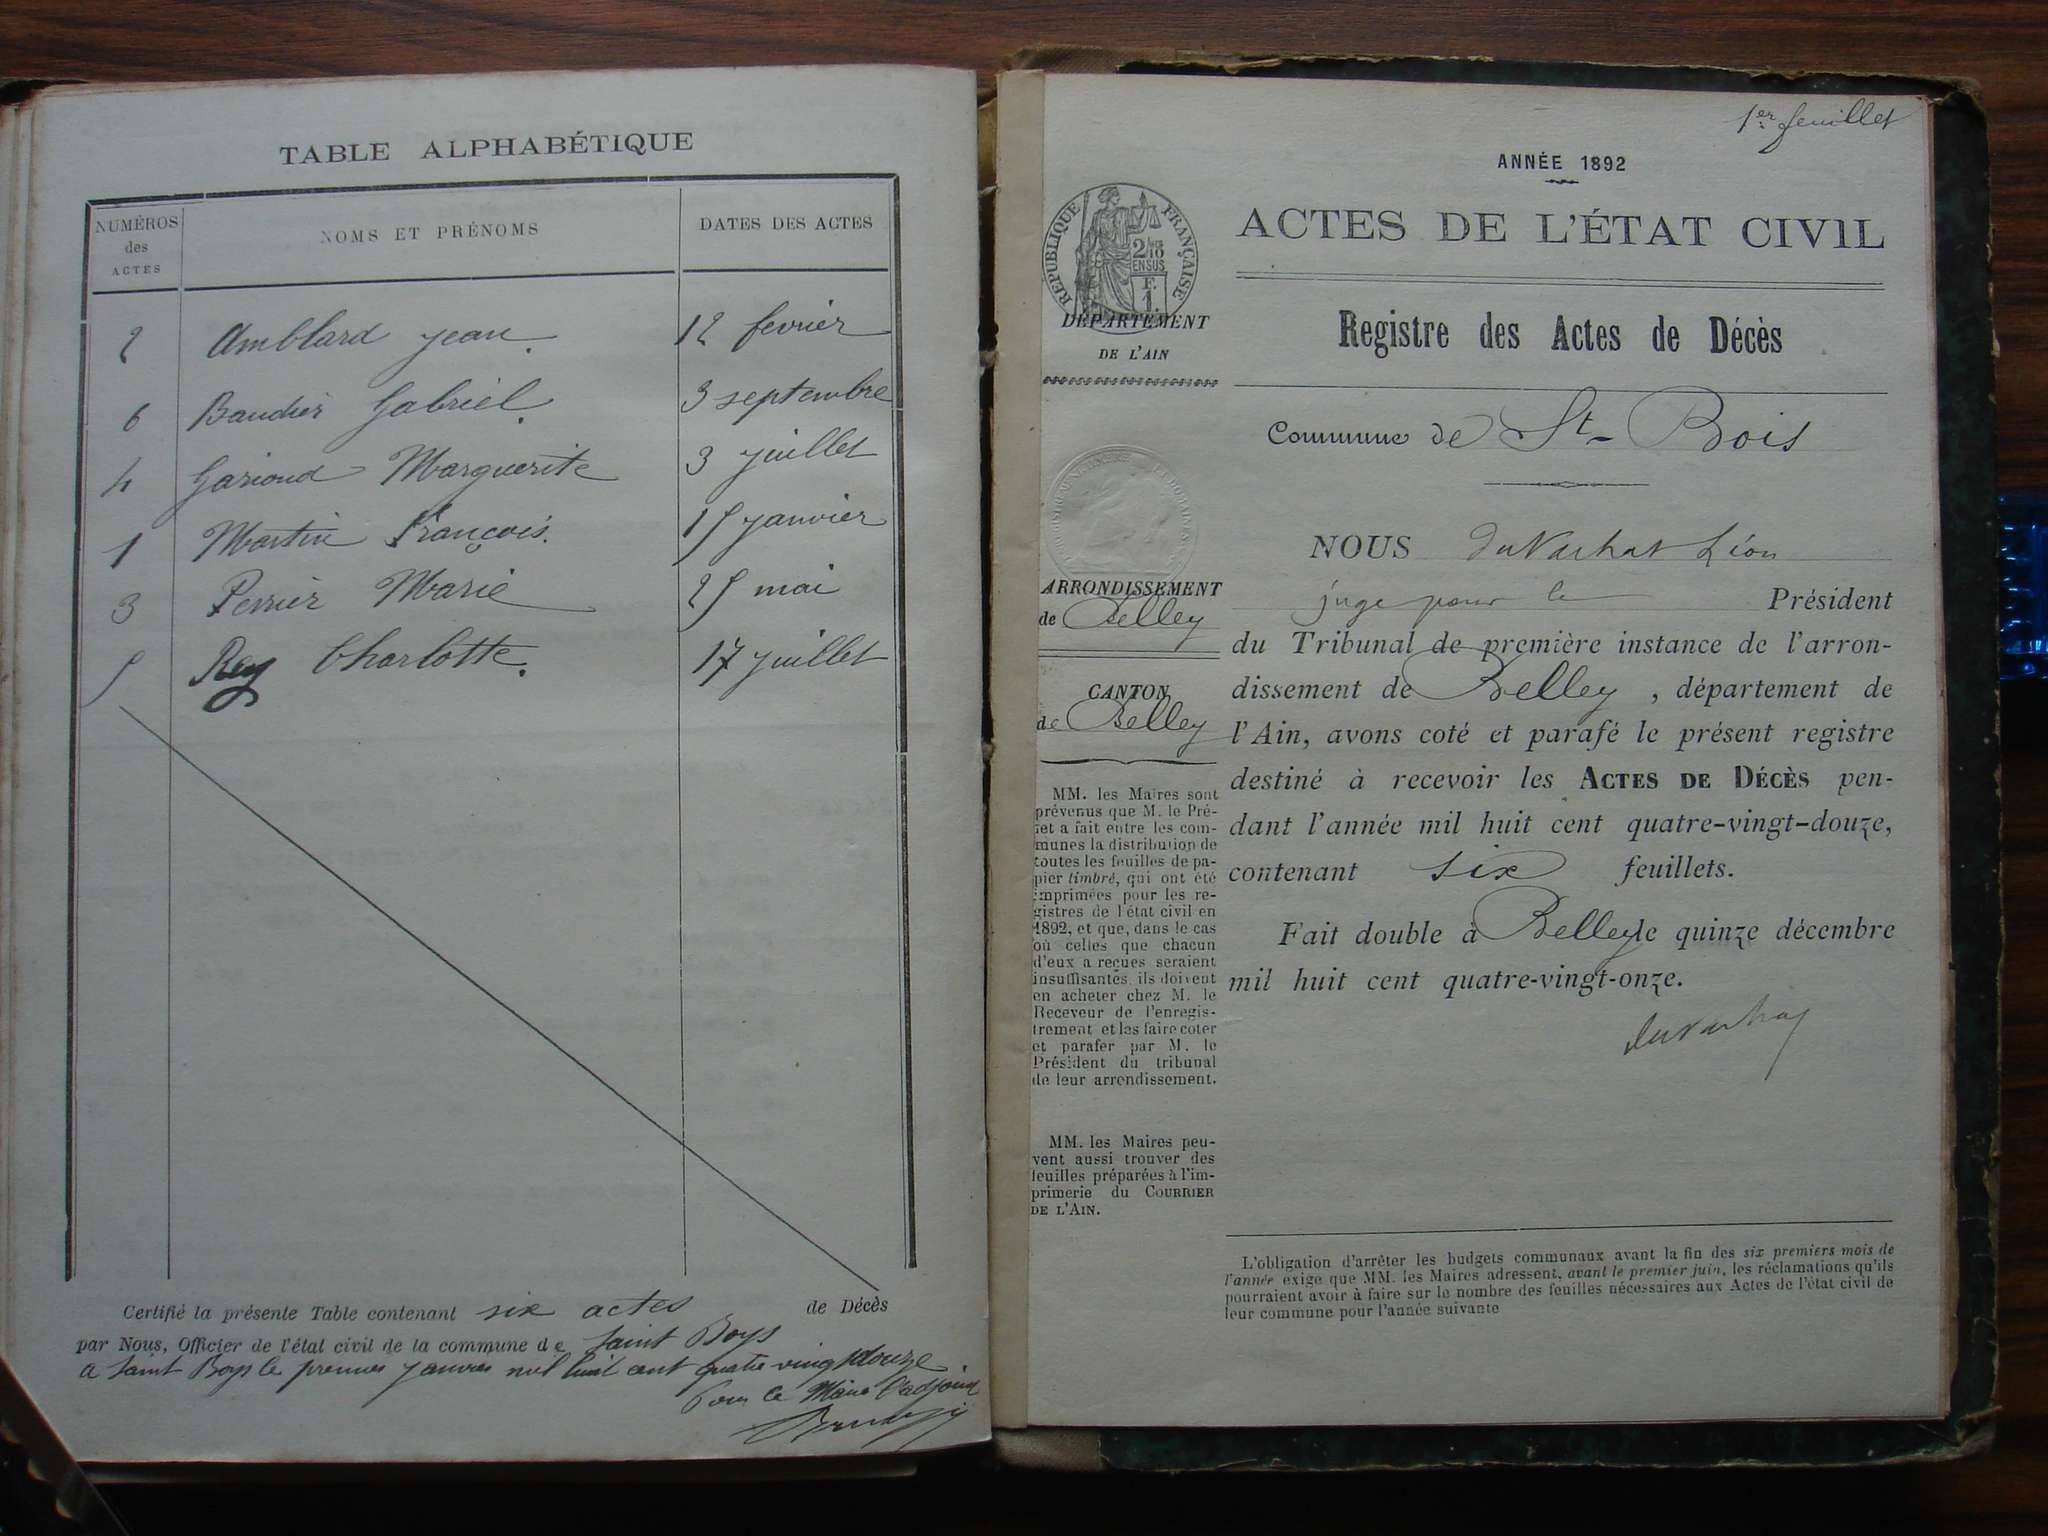 TABLE ALPHABÉTIQUE
NUMÉROS des ACTES NOMS ET PRÉNOMS DATES DES ACTES
2 Amblard Jean. 12 fevrier
6 Baudier Gabriel. 3 septembre
4 Gariond Marguerite 3 juillet
1 Martin François. 15 janvier
3 Perrier Marie 25 mai
5 Rey Charlotte. 17 juillet
Certifié la présente Table contenant six actes de Décès
par Nous, Officier de l'état civil de la commune de Saint Boys
a Saint Boys le premier janvier mil huit cent quatre vingt douze
Pour le Maire l'adjoint
1er feuillet
ANNÉE 1892
ACTES DE L'ÉTAT CIVIL
RÉPUBLIQUE FRANÇAISE
2/10 EN SUS
F. 1.
DÉPARTEMENT
DE L'AIN
Registre des Actes de Décès
Commune de St-Bois
ARRONDISSEMENT
de Belley
CANTON
de Belley
MM. les Maires sont
prévenus que M. le Pré-
fet a fait entre les com-
munes la distribution de
toutes les feuilles de pa-
pier timbré, qui ont été
imprimées pour les re-
gistres de l'état civil en
1892, et que, dans le cas
où celles que chacun
d'eux a reçues seraient
insuffisantes, ils doivent
en acheter chez M. le
Receveur de l'enregis-
trement et les faire coter
et parafer par M. le
Président du tribunal
de leur arrondissement.
MM. les Maires peu-
vent aussi trouver des
feuilles préparées à l'im-
primerie du COURRIER
DE L'AIN.
NOUS Duvachat Léon
juge pour le Président
du Tribunal de première instance de l'arron-
dissement de Belley, département de
l'Ain, avons coté et parafé le présent registre
destiné à recevoir les ACTES DE DÉCÈS pen-
dant l'année mil huit cent quatre-vingt-douze,
contenant six feuillets.
Fait double à Belley le quinze décembre
mil huit cent quatre-vingt-onze.
L'obligation d'arrêter les budgets communaux avant la fin des six premiers mois de
l'année exige que MM. les Maires adressent, avant le premier juin, les réclamations qu'ils
pourraient avoir à faire sur le nombre des feuilles nécessaires aux Actes de l'état civil de
leur commune pour l'année suivante